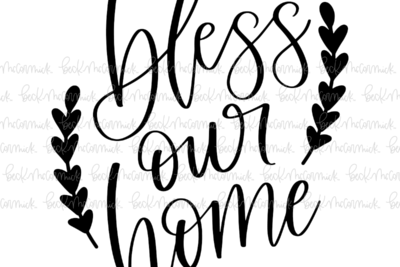 bless
our
home